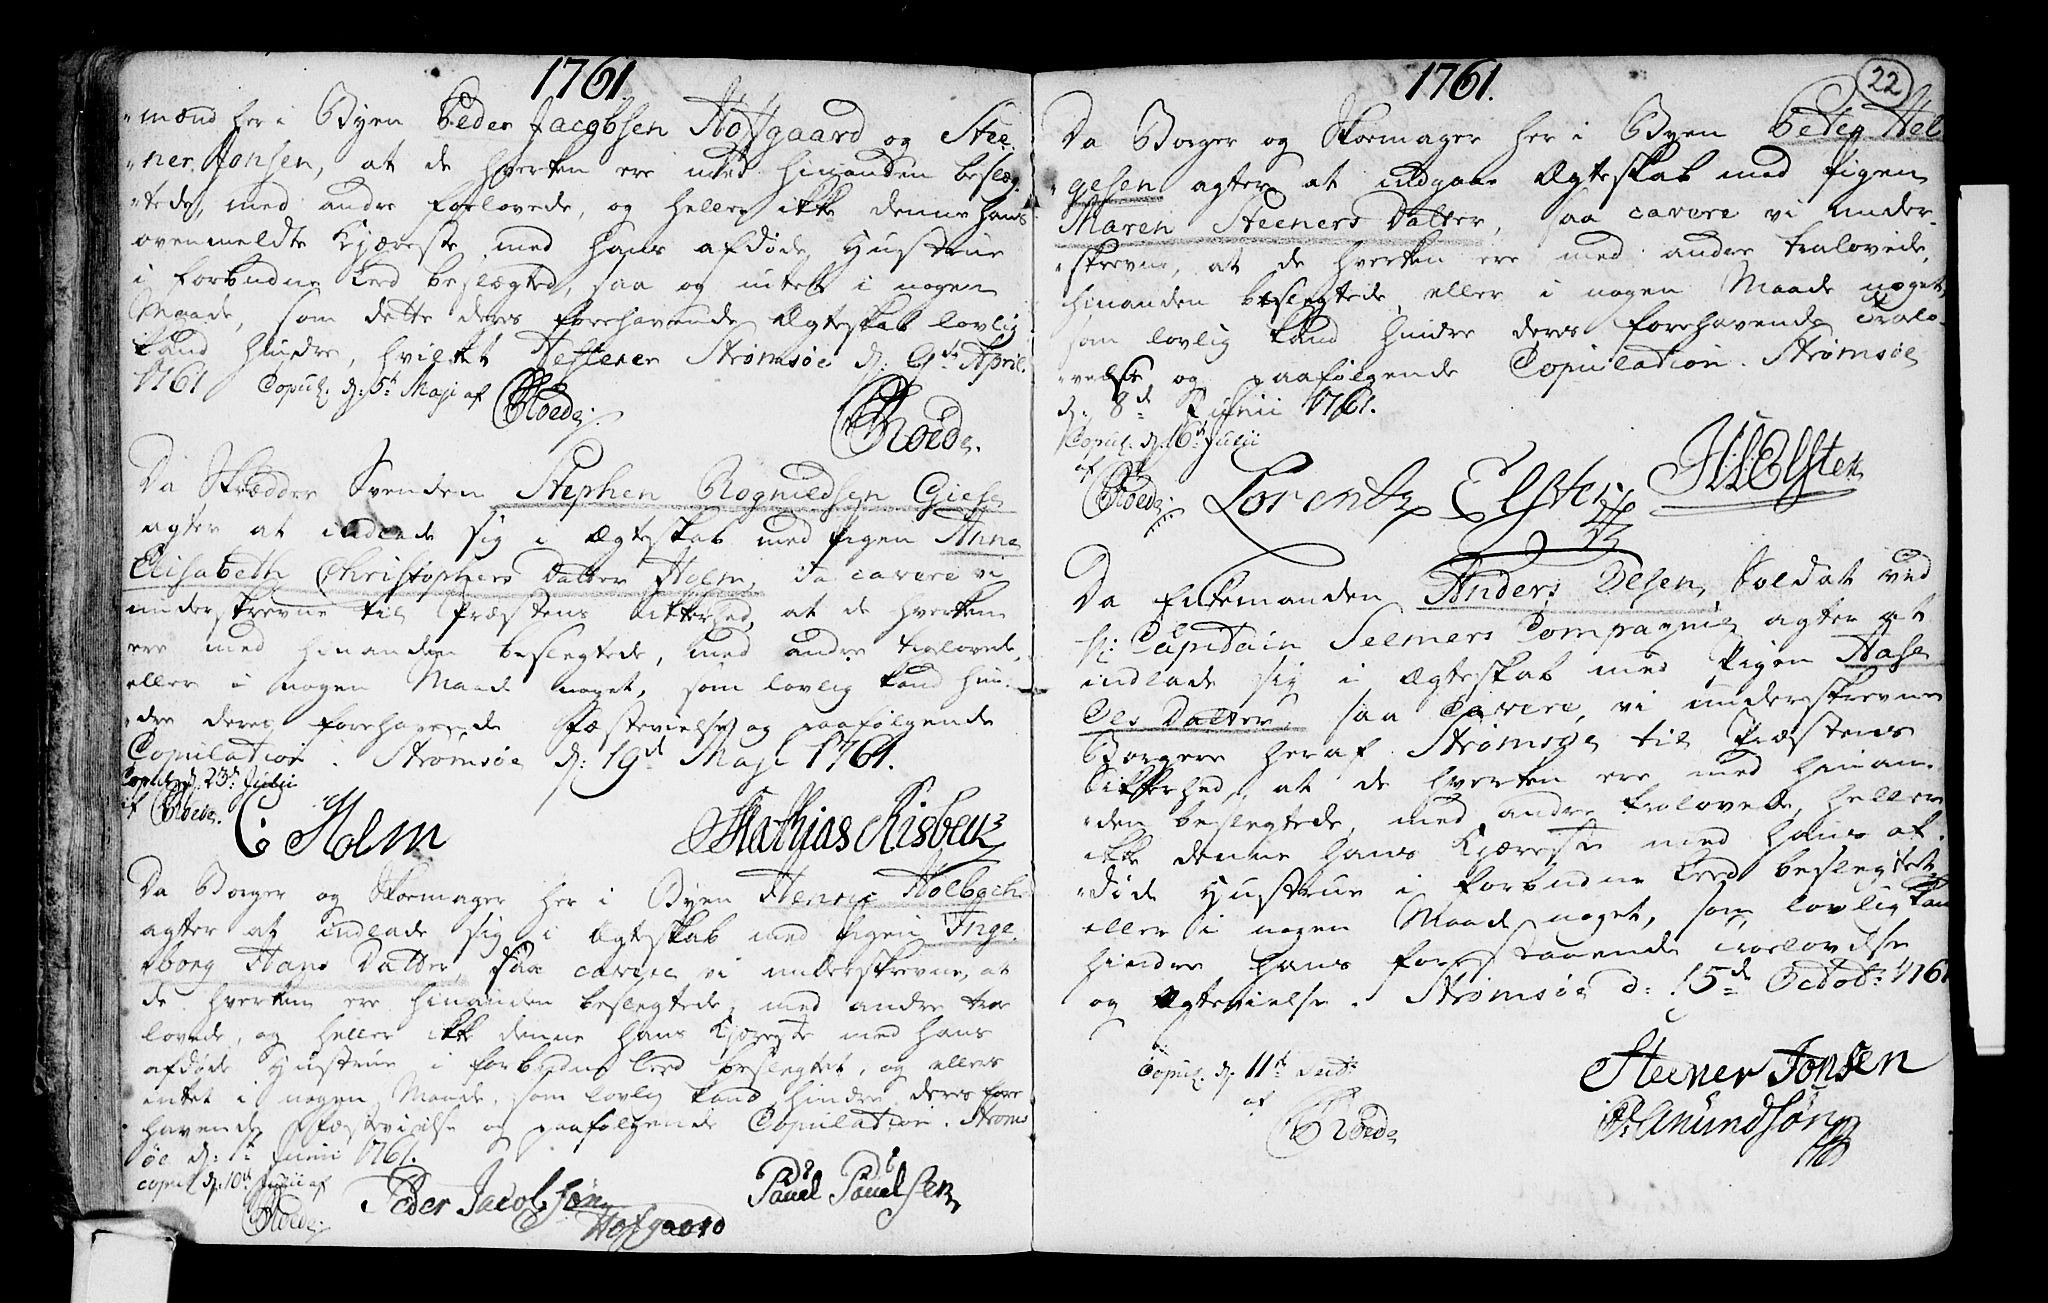 1761.
mænd her i Byen Peder Jacobsen Hofgaard og Stee-
ner Jonsen, at de hverken ere med hinanden beslæg-
tede, med andre forlovede, og heller ikke denne hans
ovenmeldte Kjæreste med hans afdøde Hustrue
i forbudne Leed beslægted, saa og intet i nogen
Maade, som dette deres forehavende Ægteskab lovlig
kand hindre, hvilket Testerer Strømsøe d: 9de April
1761 Copul. d: 5t Maji af CRoede.
CRoede.
Da Skrædder Svenden Stephen Rognildsen Giese
agter at indlade sig i Ægteskab med Pigen Anne
Elisabeth Christophers Datter Holm, da cavere vi
underskrevne til Præstens Sikkerhed, at de hverken
ere med hinanden beslegtede, med andre trolovede,
eller i nogen Maade noget, som lovlig kand hin-
dre deres forehavende Fæstevielse og paafølgende
Copulation. Strømsøe d: 19d Maji 1761.
Copul. d. 23d Julii
af CRoede.
C: Holm Mathias Risbeck
Da Borger og Skoemager her i Byen Henric Holbech
agter at indlade sig i Ægteskab med Pigen Inge-
borg Hans Datter, saa cavere vi underskrevne, at
de hverken ere hinanden beslegtede, med andre troe
lovede, og heller ikke denne hans Kjæreste med hans
afdøde Hustrue i forbudne Leed beslegtet, og ellers
intet i nogen Maade, som lovlig kand hindre deres fore
havende Fæstevielse og paafølgende Copulation. Strøms
øe d: 1t Junii 1761.
Copul. d. 10d Julii af
CRoede.
Peder Jacobsøn
Hofgaard
Pauel Pauelsen
1761.
22
Da Borger og Skoemager her i Byen Peder Hel
gesen agter at indgaae Ægteskab med Pigen
Maren Steeners Datter, saa cavere vi under-
skrevne, at de hverken ere med andre trolovede,
hinanden beslegtede, eller i nogen Maade noget,
som lovlig kand hindre deres forehavende Trolo-
velse og paafølgende Copulation. Strømsøe
d: 8d Junii 1761.
Copul. d. 16d Julii
af
CRoede.
Lorentz Elster
Da Enkemanden Anders Olsen, Soldat ved
Hr: Capitain Seemers Compagnie agter at
indlade sig i Ægteskab med Pigen Aase
Ols Datter, saa cavere vi underskrevne
Borgere heraf Strømsøe til Præstens
Sikkerhed, at de hverken ere med hinan-
den beslegtede, med andre trolovede, heller
ikke denne hans Kjæreste med hans af-
døde Hustrue i forbudne Leed beslegtet,
eller i nogen Maade noget, som lovlig kan
hindre hans forestaaende Troelovelse
og Ægtevielse. Strømsøe d: 15de Octob: 1761
Copul. d. 11t
af
CRoede
Steener Jonsen
P: Amundsøn